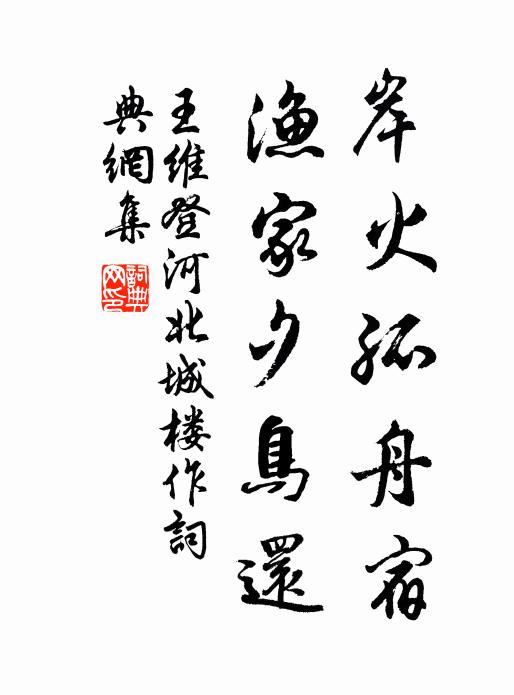 岸火孤舟宿
漁家夕鳥還
王維登河北城楼作詞
典網集
詞典網印